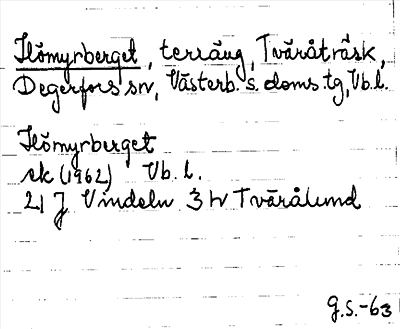 Flömyrberget, terräng, Tväråträsk,
Degerfors sn, Västerb. s. doms. tg, Vb. l.
Flömyrberget
ek (1962) Vb. l.
21 J Vindeln 3 h Tvärålund
G.S.-63